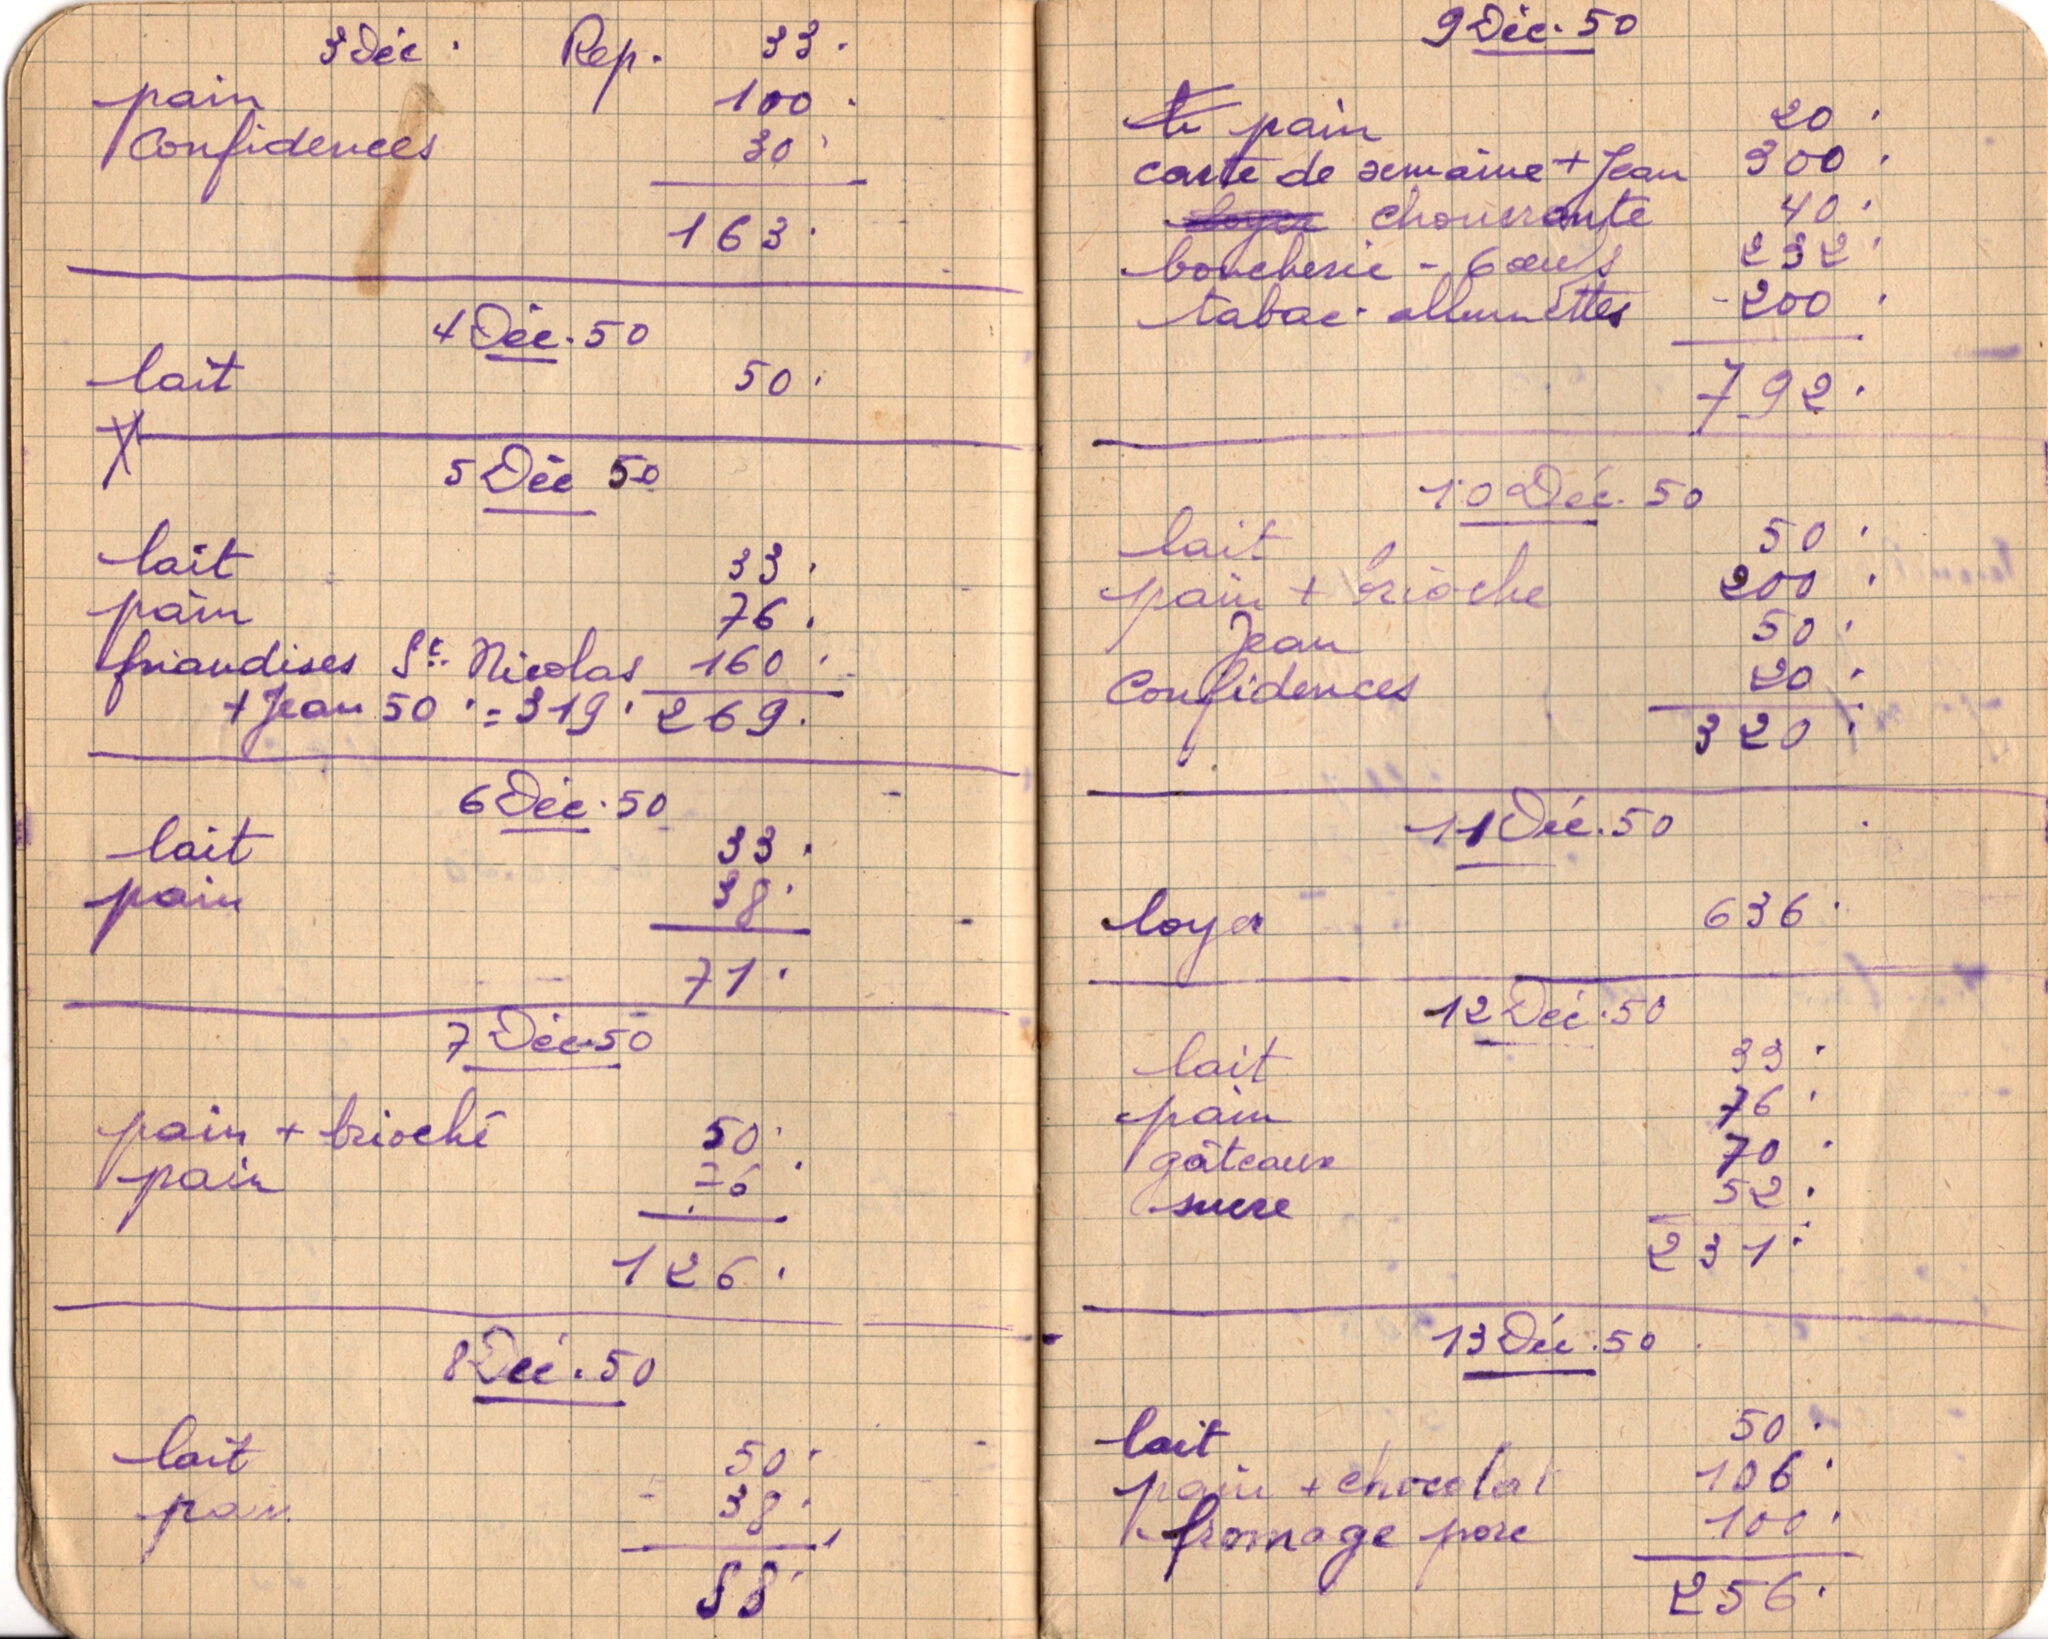 3 Déc. Rep. 33.
pain 100.
Confidences 30.
163.
4 Déc. 50
lait 50.
5 Déc 50
lait 33.
pain 76.
friandises St. Nicolas 160.
+ Jean 50. = 319. 269.
6 Déc. 50
lait 33.
pain 38.
71.
7 Déc. 50
pain + brioche 50.
pain 76.
126.
8 Déc. 50
lait 50.
pain 38.
88.
9 Déc. 50
pain 20.
carte de semaine + Jean 300.
loyer choucroute 40.
boucherie - 6 œufs 232.
tabac. allumettes - 200.
792.
10 Déc. 50
lait 50.
pain + brioche 200.
Jean 50.
Confidences 20.
320.
11 Déc. 50
loyer 636.
12 Déc. 50
lait 33.
pain 76.
gâteaux 70.
sucre 52.
231.
13 Déc. 50
lait 50.
pain + chocolat 106.
fromage porc 100.
256.